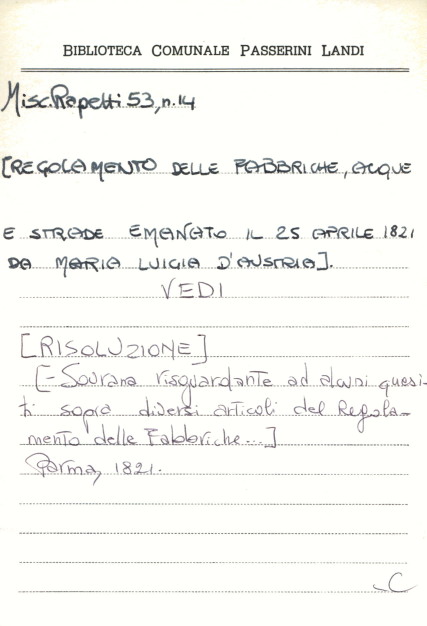 BIBLIOTECA COMUNALE PASSERINI LANDI
Misc. Rapetti 53, n. 14
[REGOLAMENTO DELLE FABBRICHE, ACQUE
E STRADE EMANATO IL 25 APRILE 1821
DA MARIA LUIGIA D'AUSTRIA].
VEDI
[RISOLUZIONE]
[-Sovrana risguardante ad alcuni quesi-
ti sopra diversi articoli del Regola-
mento delle Fabbriche...]
Parma, 1821.
C